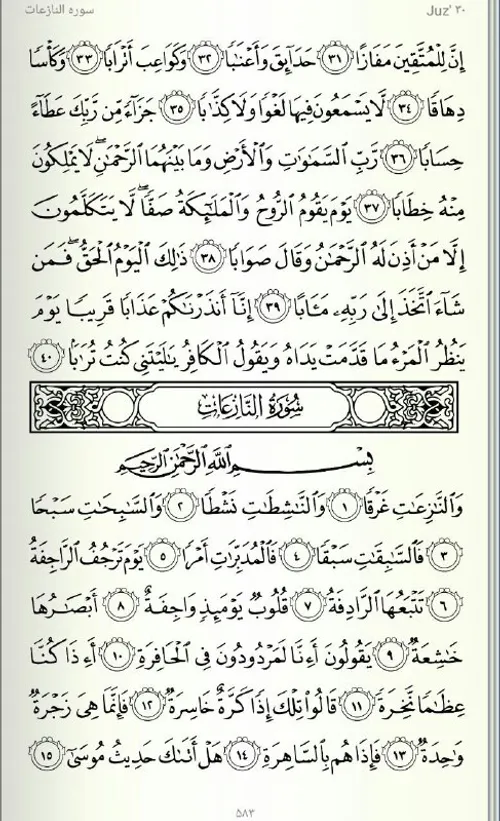 سوره النازعات Juz' ۳۰
إِنَّ لِلْمُتَّقِينَ مَفَازًا ٣١ حَدَآئِقَ وَأَعْنَٰبًا ٣٢ وَكَوَاعِبَ أَتْرَابًا ٣٣ وَكَأْسًا
دِهَاقًا ٣٤ لَّا يَسْمَعُونَ فِيهَا لَغْوًا وَلَا كِذَّٰبًا ٣٥ جَزَآءً مِّن رَّبِّكَ عَطَآءً
حِسَابًا ٣٦ رَّبِّ ٱلسَّمَٰوَٰتِ وَٱلْأَرْضِ وَمَا بَيْنَهُمَا ٱلرَّحْمَٰنِ ۖ لَا يَمْلِكُونَ
مِنْهُ خِطَابًا ٣٧ يَوْمَ يَقُومُ ٱلرُّوحُ وَٱلْمَلَٰٓئِكَةُ صَفًّا ۖ لَّا يَتَكَلَّمُونَ
إِلَّا مَنْ أَذِنَ لَهُ ٱلرَّحْمَٰنُ وَقَالَ صَوَابًا ٣٨ ذَٰلِكَ ٱلْيَوْمُ ٱلْحَقُّ ۖ فَمَن
شَآءَ ٱتَّخَذَ إِلَىٰ رَبِّهِۦ مَـَٔابًا ٣٩ إِنَّآ أَنذَرْنَٰكُمْ عَذَابًا قَرِيبًا يَوْمَ
يَنظُرُ ٱلْمَرْءُ مَا قَدَّمَتْ يَدَاهُ وَيَقُولُ ٱلْكَافِرُ يَٰلَيْتَنِى كُنتُ تُرَٰبًۢا ٤٠
سُورَةُ النَّازِعَاتِ
بِسْمِ ٱللَّهِ ٱلرَّحْمَٰنِ ٱلرَّحِيمِ
وَٱلنَّٰزِعَٰتِ غَرْقًا ١ وَٱلنَّٰشِطَٰتِ نَشْطًا ٢ وَٱلسَّٰبِحَٰتِ سَبْحًا
٣ فَٱلسَّٰبِقَٰتِ سَبْقًا ٤ فَٱلْمُدَبِّرَٰتِ أَمْرًا ٥ يَوْمَ تَرْجُفُ ٱلرَّاجِفَةُ
٦ تَتْبَعُهَا ٱلرَّادِفَةُ ٧ قُلُوبٌ يَوْمَئِذٍ وَاجِفَةٌ ٨ أَبْصَٰرُهَا
خَٰشِعَةٌ ٩ يَقُولُونَ أَءِنَّا لَمَرْدُودُونَ فِى ٱلْحَافِرَةِ ١٠ أَءِذَا كُنَّا
عِظَٰمًا نَّخِرَةً ١١ قَالُوا۟ تِلْكَ إِذًا كَرَّةٌ خَاسِرَةٌ ١٢ فَإِنَّمَا هِىَ زَجْرَةٌ
وَٰحِدَةٌ ١٣ فَإِذَا هُم بِٱلسَّاهِرَةِ ١٤ هَلْ أَتَىٰكَ حَدِيثُ مُوسَىٰٓ ١٥
٥٨٣